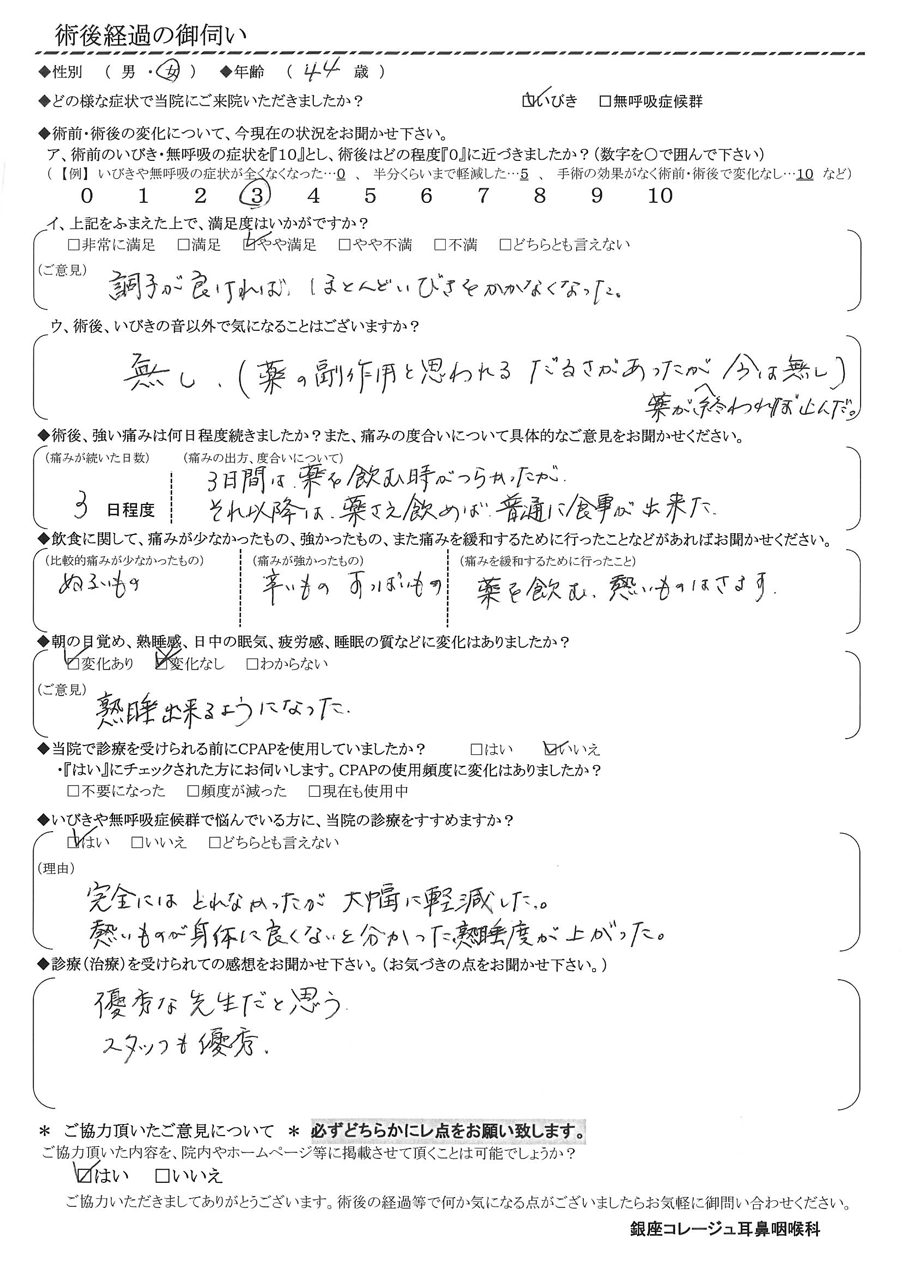 術後経過の御伺い
◆性別 （ 男 ・ 女 ） ◆年齢 （ 44 歳 ）
◆どの様な症状で当院にご来院いただきましたか？ ☑いびき □無呼吸症候群
◆術前・術後の変化について、今現在の状況をお聞かせ下さい。
ア、術前のいびき・無呼吸の症状を『10』とし、術後はどの程度『0』に近づきましたか？（数字を〇で囲んで下さい）
（ 【例】 いびきや無呼吸の症状が全くなくなった…0 、 半分くらいまで軽減した…5 、 手術の効果がなく術前・術後で変化なし…10 など）
0 1 2 3 4 5 6 7 8 9 10
イ、上記をふまえた上で、満足度はいかがですか？
□非常に満足 □満足 ☑やや満足 □やや不満 □不満 □どちらとも言えない
（ご意見）
調子が良ければ、ほとんどいびきをかかなくなった。
ウ、術後、いびきの音以外で気になることはございますか？
無し、（薬の副作用と思われる だるさがあったが 今は無し）
薬が終われば止んだ。
◆術後、強い痛みは何日程度続きましたか？また、痛みの度合いについて具体的なご意見をお聞かせください。
（痛みが続いた日数） （痛みの出方、度合いについて）
3日間は、薬を飲む時がつらかったが、
3 日程度 それ以降は、薬さえ飲めば、普通に食事が出来た.
◆飲食に関して、痛みが少なかったもの、強かったもの、また痛みを緩和するために行ったことなどがあればお聞かせください。
（比較的痛みが少なかったもの） （痛みが強かったもの） （痛みを緩和するために行ったこと）
ぬるいもの 辛いもの すっぱいもの 薬を飲む、熱いものはさます.
◆朝の目覚め、熟睡感、日中の眠気、疲労感、睡眠の質などに変化はありましたか？
☑変化あり ☒変化なし □わからない
（ご意見）
熟睡出来るようになった.
◆当院で診療を受けられる前にCPAPを使用していましたか？ □はい ☑いいえ
・『はい』にチェックされた方にお伺いします。CPAPの使用頻度に変化はありましたか？
□不要になった □頻度が減った □現在も使用中
◆いびきや無呼吸症候群で悩んでいる方に、当院の診療をすすめますか？
☑はい □いいえ □どちらとも言えない
（理由）
完全には とれなかったが 大幅に軽減した。
熱いものが身体に良くないと分かった 熟睡度が上がった。
◆診療（治療）を受けられての感想をお聞かせ下さい。（お気づきの点をお聞かせ下さい。）
優秀な先生だと思う.
スタッフも優秀.
＊ ご協力頂いたご意見について ＊ 必ずどちらかにレ点をお願い致します。
ご協力頂いた内容を、院内やホームページ等に掲載させて頂くことは可能でしょうか？
☑はい □いいえ
ご協力いただきましてありがとうございます。術後の経過等で何か気になる点がございましたらお気軽に御問い合わせください。
銀座コレージュ耳鼻咽喉科